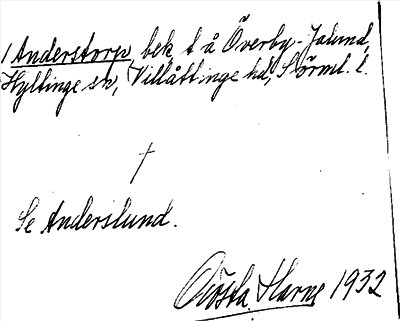 1 Anderstorp, bek. t å Överby-Jalund,
Hyltinge sn, Villåttinge hd, Sörml. l.
†
Se Anderslund.
Gösta Harne 1932